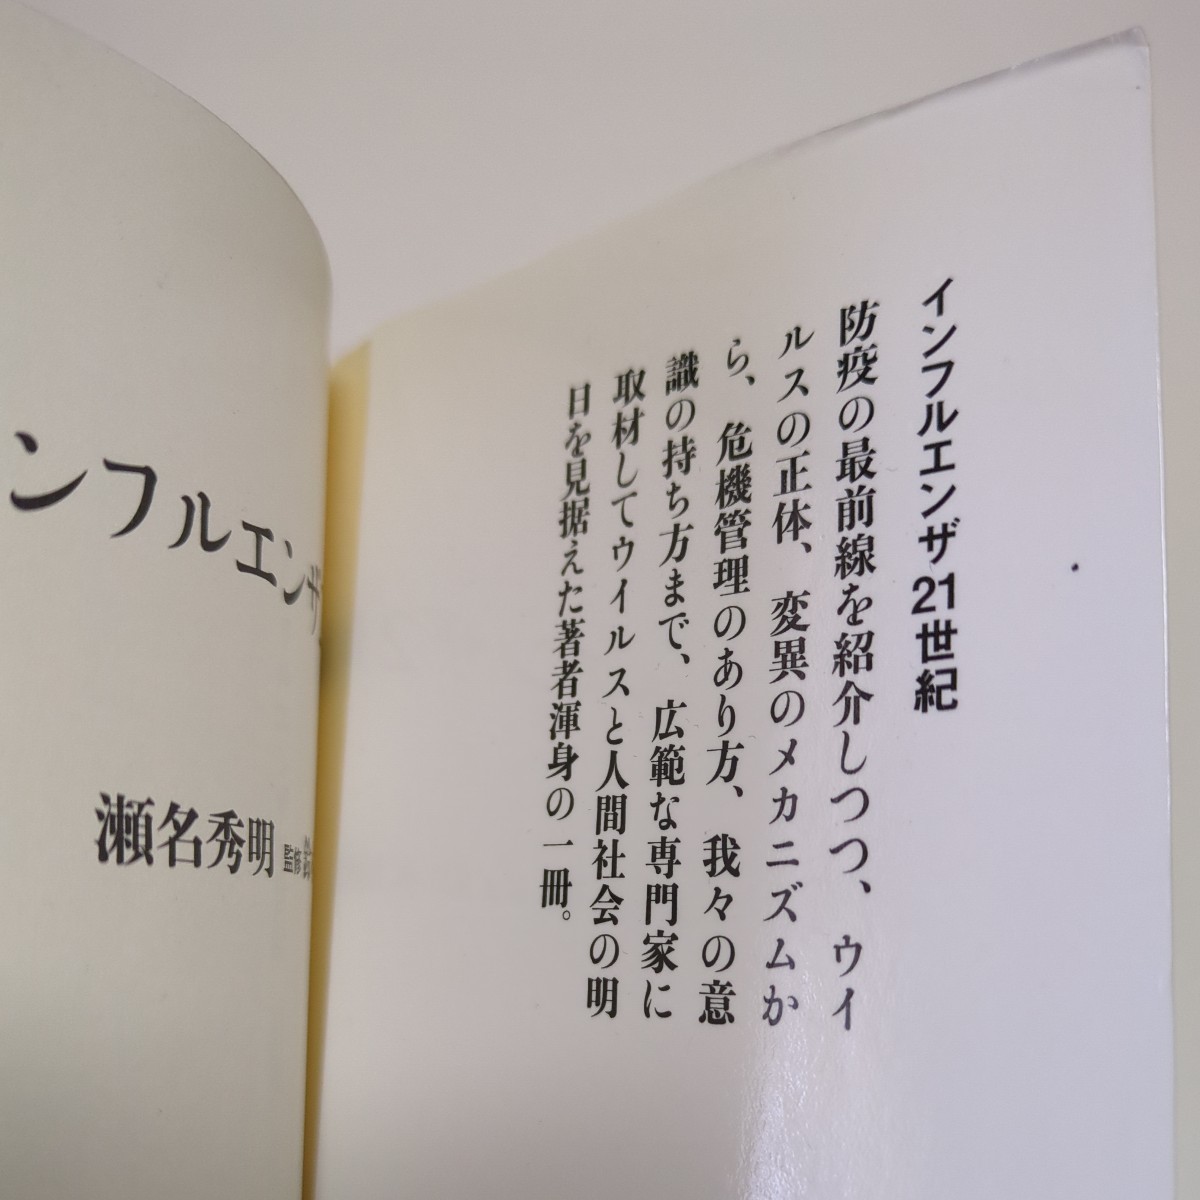 インフルエンザ21世紀
防疫の最前線を紹介しつつ、ウイ
ルスの正体、変異のメカニズムか
ら、危機管理のあり方、我々の意
識の持ち方まで、広範な専門家に
取材してウイルスと人間社会の明
日を見据えた著者渾身の一冊。
ンフルエンザ
瀬名秀明 監修